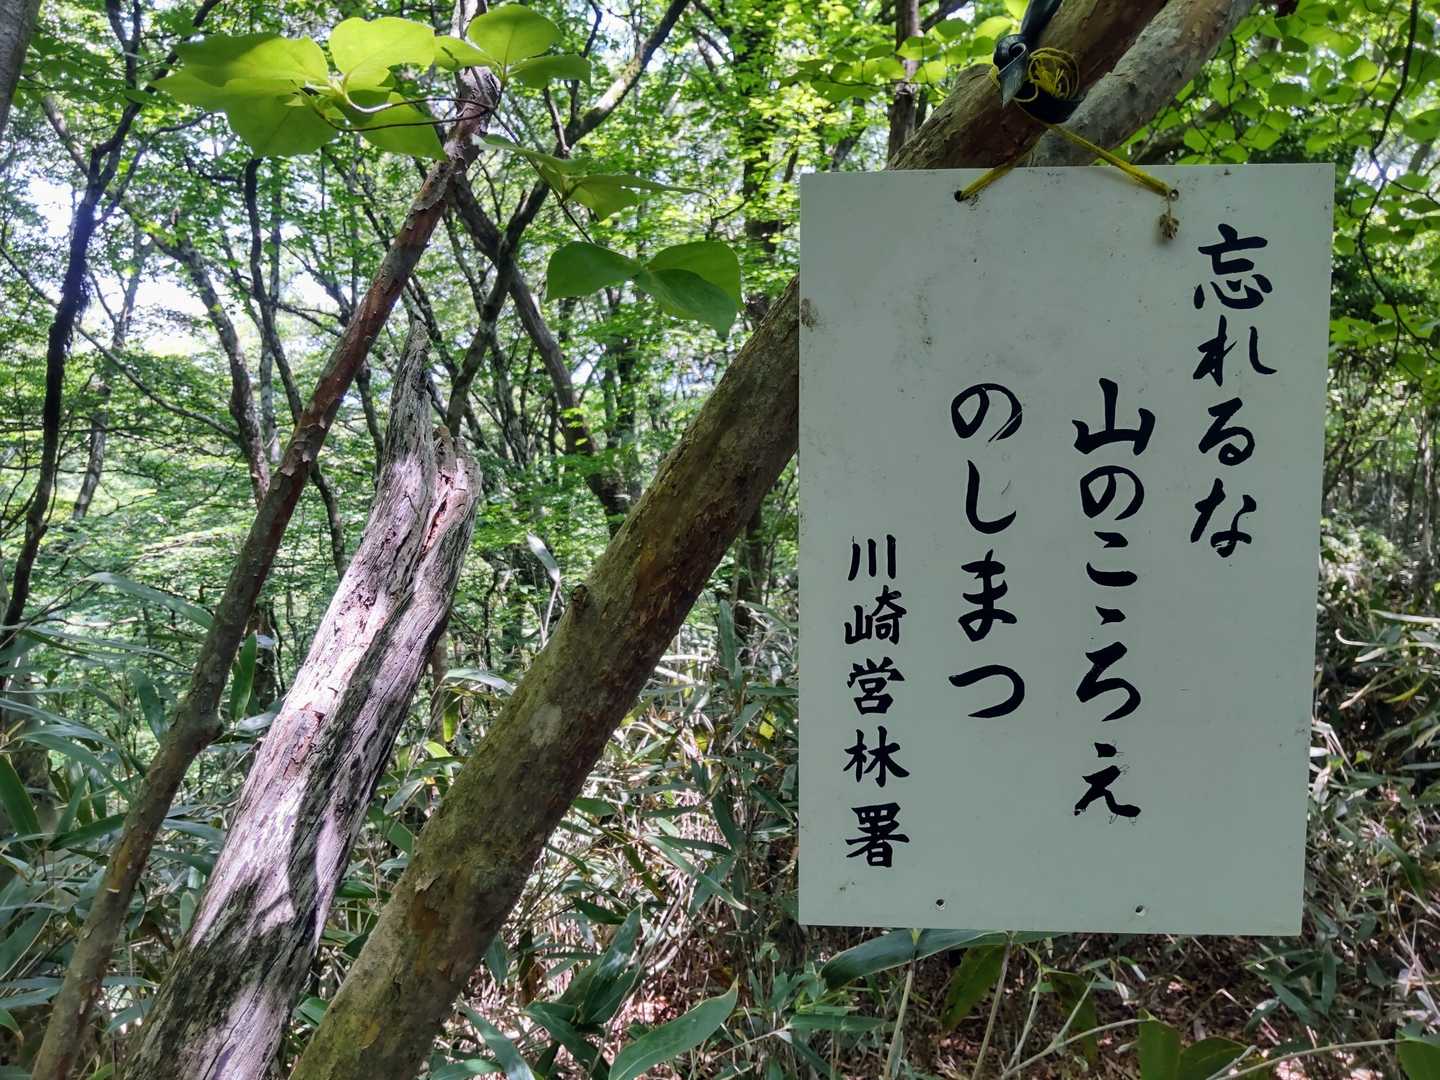 忘れるな
山のこころえ
のしまつ
川崎営林署